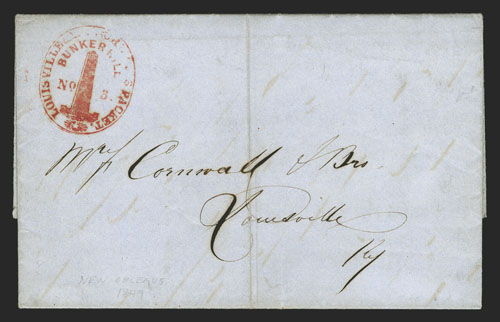 LOUISVILLE PACKET.
BUNKER HILL
No 3.
Messrs Cornwall & Bro
Louisville
Ky
NEW ORLEANS
1849